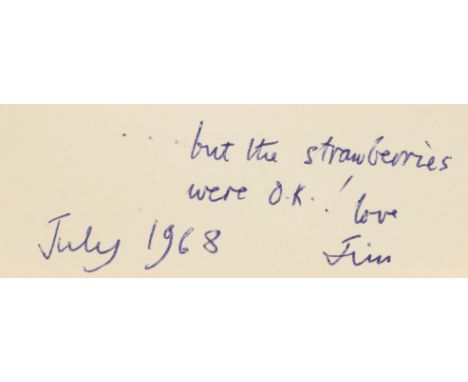 ... but the strawberries
were O.K.! love
July 1968 Jim